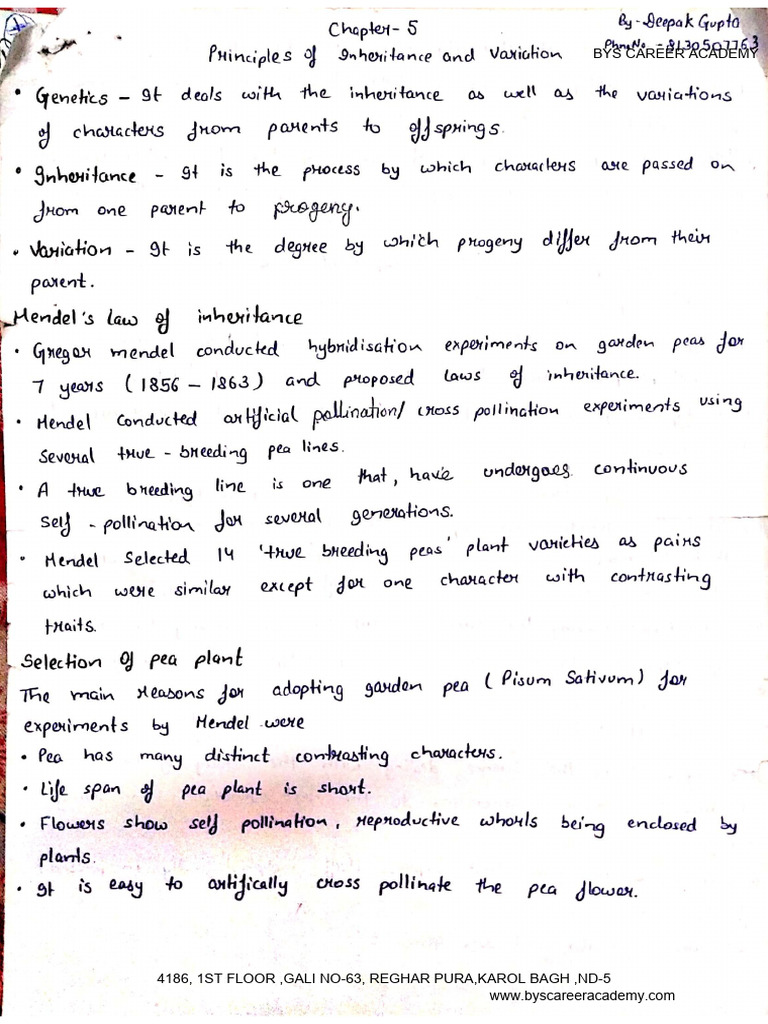 Chapter- 5
By- Deepak Gupta
Principles of Inheritance and Variation
BYS CAREER ACADEMY
• Genetics - It deals with the inheritance as well as the variations
of characters from parents to offsprings.
• Inheritance - It is the process by which characters are passed on
from one parent to progeny.
• Variation - It is the degree by which progeny differ from their
parent.
Mendel's law of inheritance
• Gregor mendel conducted hybridisation experiments on garden peas for
7 years (1856 - 1863) and proposed laws of inheritance.
• Mendel conducted artificial pollination/ cross pollination experiments using
several true - breeding pea lines.
• A true breeding line is one that, have undergoes continuous
self - pollination for several generations.
• Mendel selected 14 'true breeding peas' plant varieties as pairs
which were similar except for one character with contrasting
traits.
Selection of pea plant
The main reasons for adopting garden pea (Pisum Sativum) for
experiments by Mendel were
• Pea has many distinct contrasting characters.
• Life span of pea plant is short.
• Flowers show self pollination, reproductive whorls being enclosed by
plants.
• It is easy to artifically cross pollinate the pea flower.
4186, 1ST FLOOR ,GALI NO-63, REGHAR PURA,KAROL BAGH ,ND-5
www.byscareeracademy.com